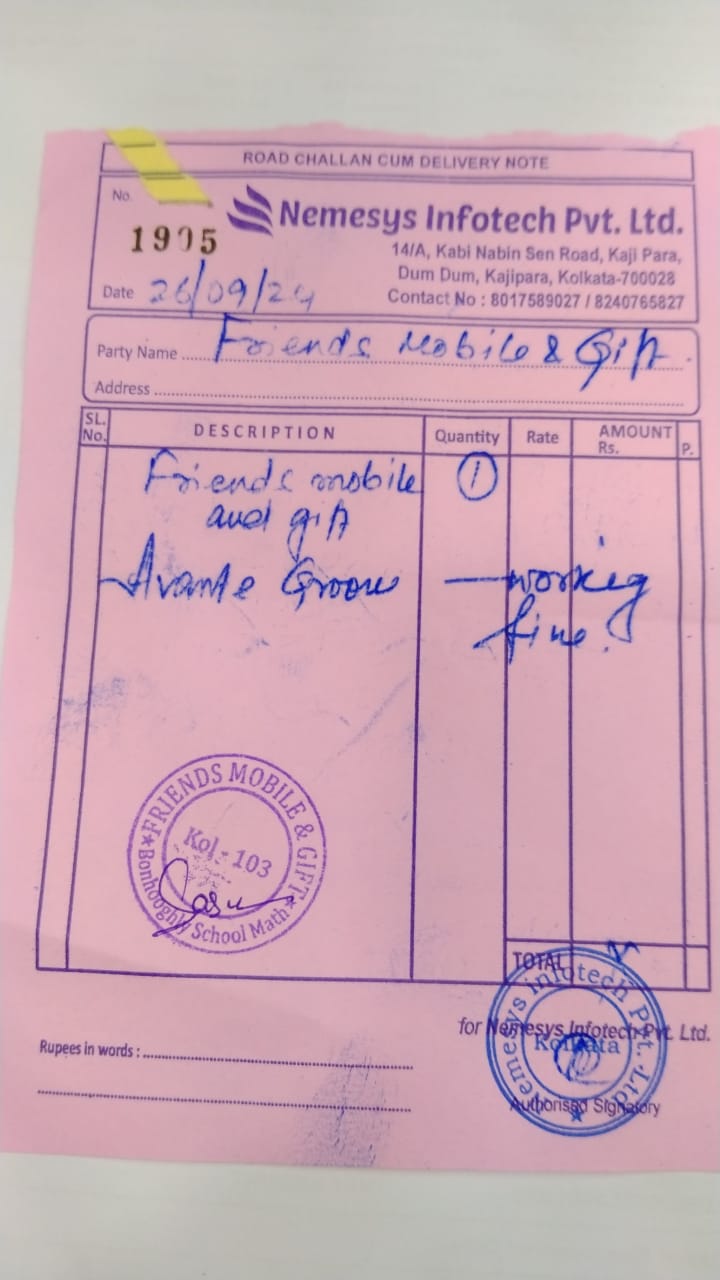 ROAD CHALLAN CUM DELIVERY NOTE
No.
1905
Nemesys Infotech Pvt. Ltd.
14/A, Kabi Nabin Sen Road, Kaji Para,
Dum Dum, Kajipara, Kolkata-700028
Contact No : 8017589027 / 8240765827
Date 26/09/24
Party Name Friends Mobile & Gift
Address
SL. No. DESCRIPTION Quantity Rate AMOUNT Rs. P.
Friends mobile 1
and gift
Avante Groove — working
fine.
FRIENDS MOBILE & GIFT
Kol - 103
Bonhooghly School Math
TOTAL
for Nemesys Infotech Pvt. Ltd.
Nemesys Infotech Pvt. Ltd.
Kolkata
Rupees in words :
Authorised Signatory